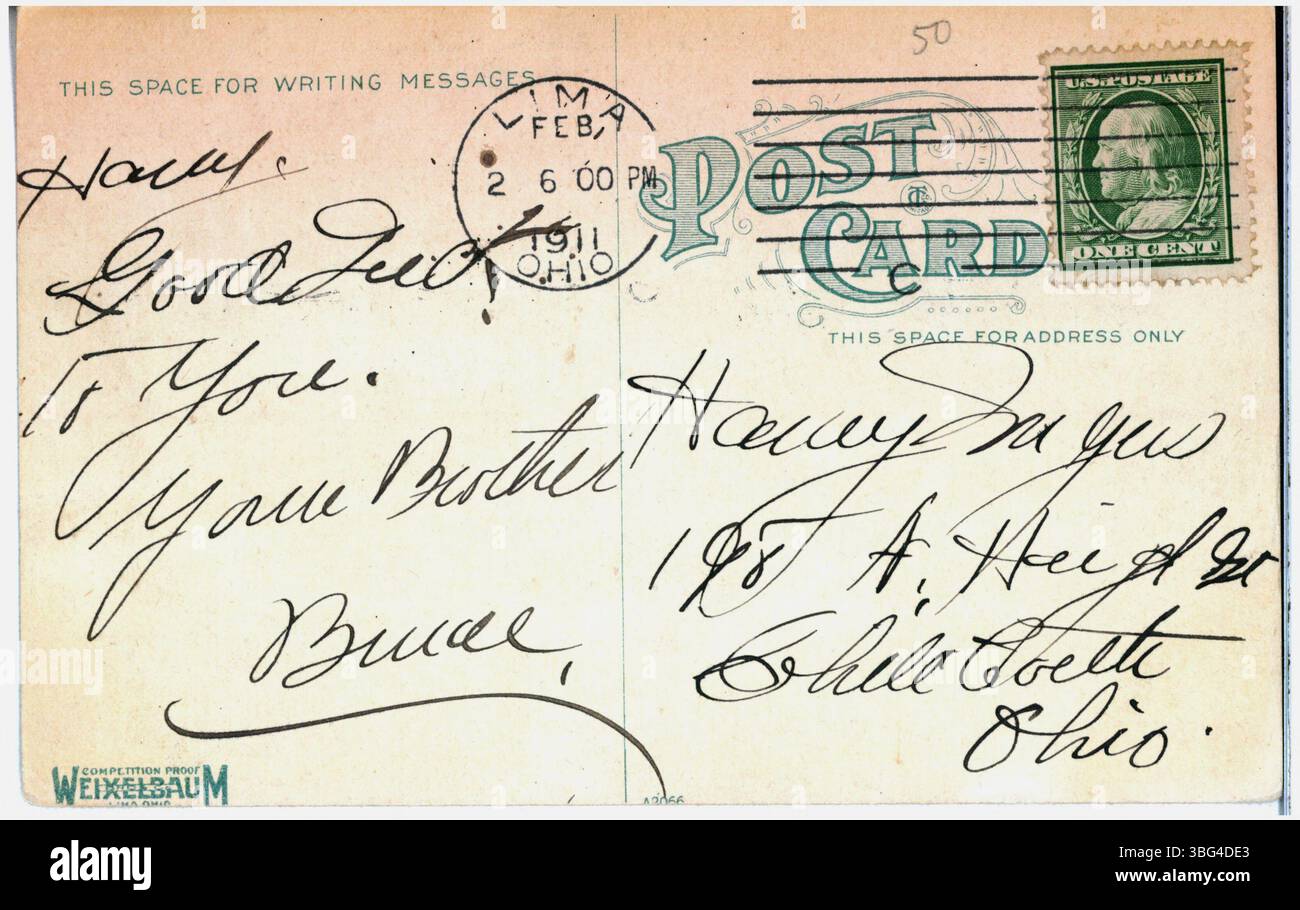 50
THIS SPACE FOR WRITING MESSAGES
LIMA
FEB.
2 6 00 PM
1911
OHIO
U.S. POSTAGE
ONE CENT
POST
CARD
C
THIS SPACE FOR ADDRESS ONLY
Harry.
Good
To You.
Your Brother
Harvey
N. High St
Ohio.
COMPETITION PROOF
WEIXELBAUM
LIMA OHIO
A2066
alamy
Image ID: 3BG4DE3
www.alamy.com